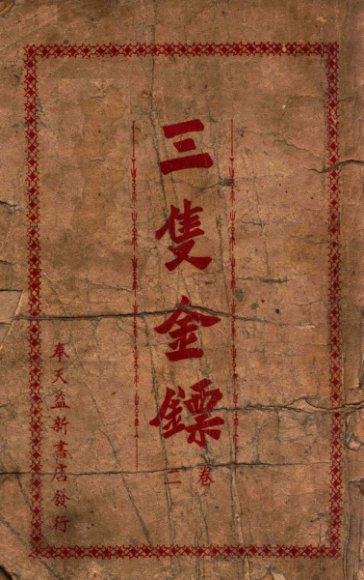 三隻金鏢
卷二
奉天益新書店發行